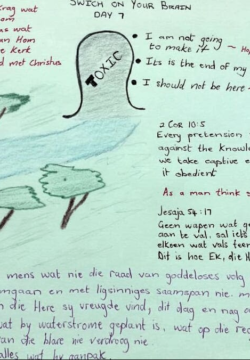 SWICH ON YOUR BRAIN
DAY 7
Krag wat
om
as wat
an Hom
e Kerk
d met Christus
TOXIC
• I am not going
to make it
• Its is the end of my
• I should not be here -
2 Cor 10:5
Every pretension
against the knowle
we take captive e
it obedient
As a man think s
Jesaja 54:17
Geen wapen wat ge
aan te val. sal iets
elkeen wat vals
Dit is hoe Ek, die H
mens wat nie die raad van goddeloses volg
omgaan en met ligsinniges saamspan nie.
n die Here sy vreugde vind, dit dag en nag
wat by waterstrome geplant is, wat op die re
an die blare nie verdroog nie.
alles wat hy aanpak.